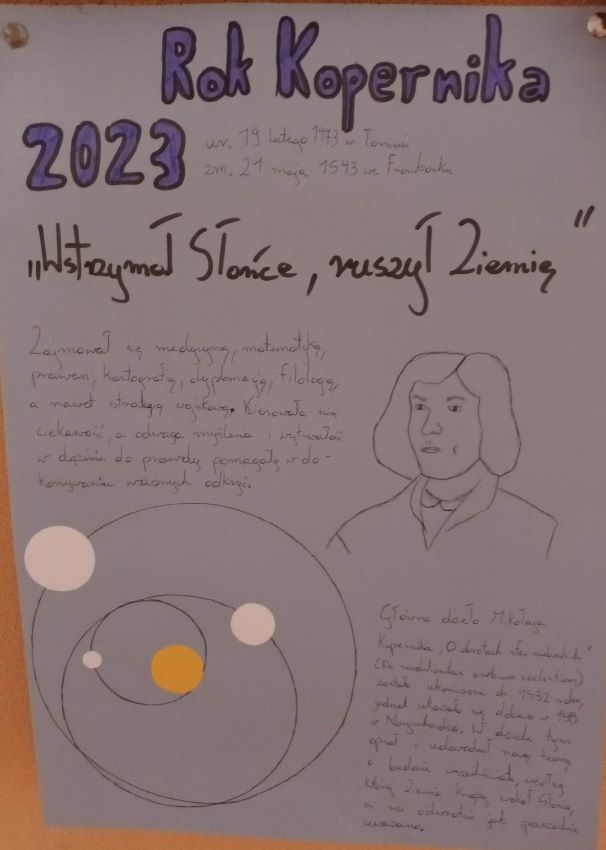 Rok Kopernika
2023
ur. 19 lutego 1473 w Toruniu
zm. 21 maja 1543 we Fromborku
„Wstrzymał Słońce, ruszył Ziemię”
Zajmował się medycyną, matematyką,
prawem, kartografią, dyplomacją, filologią,
a nawet strategią wojskową. Kierowała nim
ciekawość, a odwaga myślenia i wytrwałość
w dążeniu do prawdy pomagały w do-
konywaniu ważnych odkryć.
Główne dzieło Mikołaja
Kopernika „O obrotach sfer niebieskich"
(De revolutionibus orbium coelestium)
zostało ukończone ok. 1532 roku,
jednak ukazało się dopiero w 1543
w Norymberdze. W dziele tym
opisał i udowodnił nową teorię
o budowie wszechświata, według
której Ziemia krąży wokół Słońca,
a nie odwrotnie jak powszechnie
uważano.